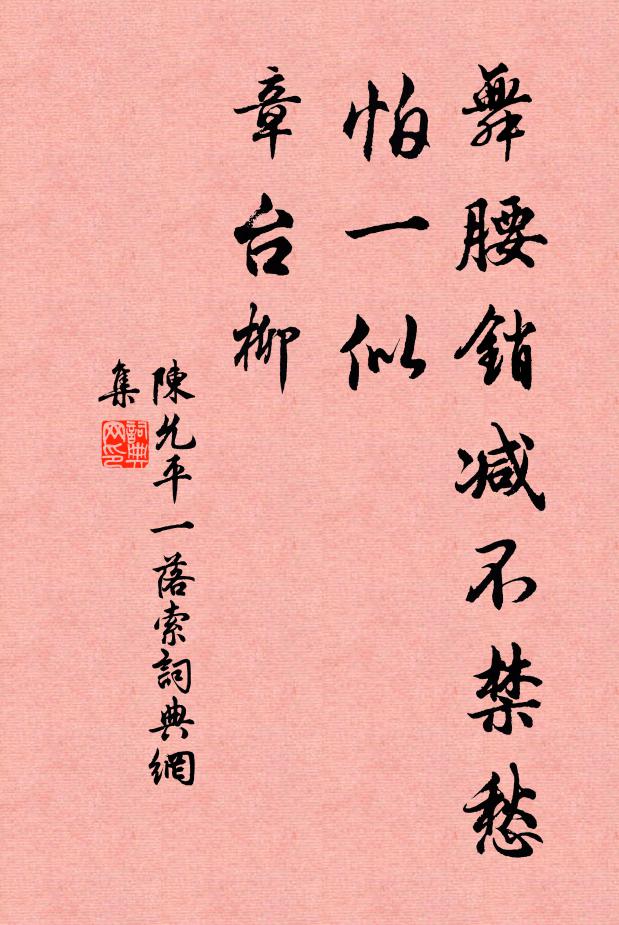 舞腰銷减不禁愁
怕一似
章台柳
陳允平一落索詞典網
集
詞典
网印